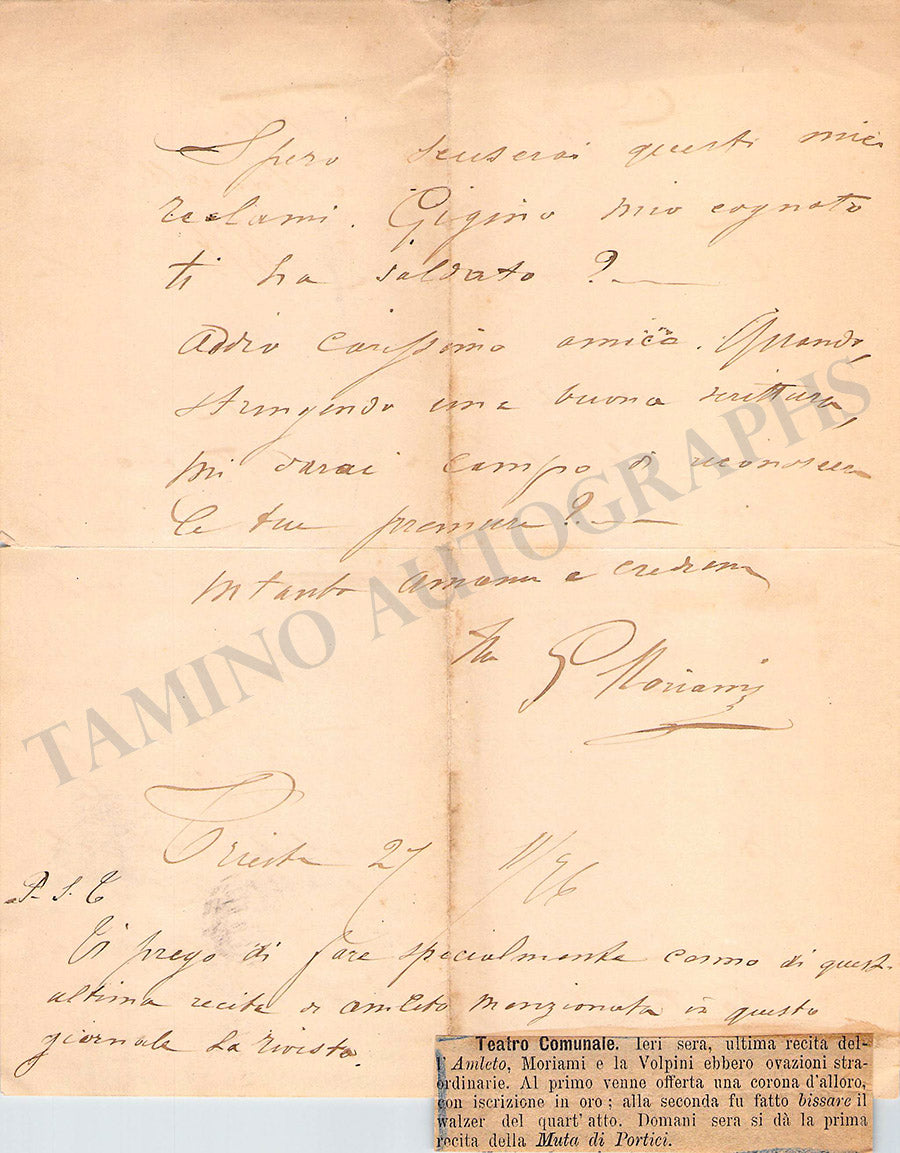 Spero scuserai questi miei
reclami. Gigino mio cognato
ti ha saldato ?
Addio carissimo amico. Quando,
stringendo una buona scrittura,
mi darai campo di riconoscere
le tue premure ?
Intanto amami e credimi
Tuo G Moriami
Trieste 27 11/76
P. S.
Ti prego di fare specialmente cenno di quest'
ultima recita di Amleto menzionata in questo
giornale La Rivista.
TAMINO AUTOGRAPHS
Teatro Comunale. Ieri sera, ultima recita del-
l' Amleto, Moriami e la Volpini ebbero ovazioni stra-
ordinarie. Al primo venne offerta una corona d'alloro,
con iscrizione in oro ; alla seconda fu fatto bissare il
walzer del quart' atto. Domani sera si dà la prima
recita della Muta di Portici.